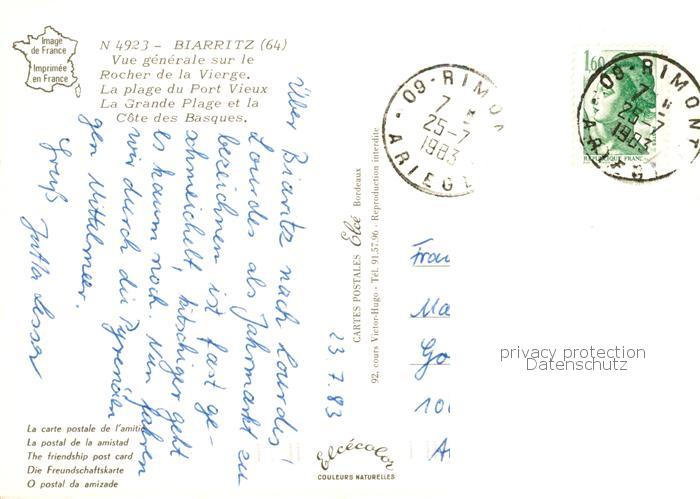 Image
de France
Imprimée
en France
N 4923 - BIARRITZ (64)
Vue générale sur le
Rocher de la Vierge.
La plage du Port Vieux
La Grande Plage et la
Côte des Basques.
Über Biarritz nach Lourdes!
Lourdes als Jahrmarkt zu
bezeichnen ist fast ge-
schmeichelt, kitschiger geht
es kaum noch. Nun fahren
wir durch die Pyrenäen
gen Mittelmeer.
Gruß Jutta Lesser
23.7.83
La carte postale de l'amitié
La postal de la amistad
The friendship post card
Die Freundschaftskarte
O postal da amizade
CARTES POSTALES Elcé Bordeaux
92, cours Victor-Hugo - Tél. 91.57.96 - Reproduction interdite
Elcécolor
COULEURS NATURELLES
09-RIMO
7 H
25-7
1983
ARIEGE
1,60
REPUBLIQUE FRANC
09-RIMONT
7 H
25-7
1983
ARIEGE
Frau
Ma
Go
10
privacy protection
Datenschutz